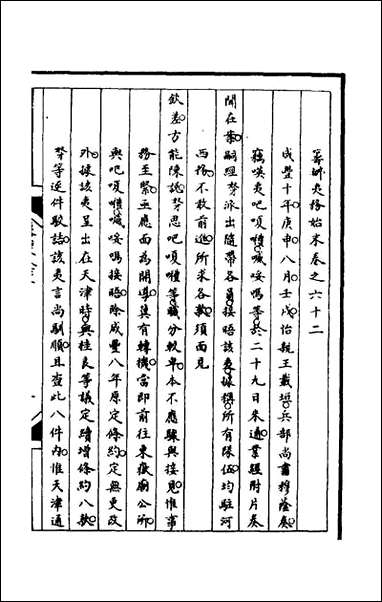 籌辦夷務始末卷之六十二
咸豐十年庚申八月壬戌怡親王載垣兵部尚書穆蔭奏
竊唤夷吧嗄禮喊妥嗎等於二十九日來通業經附片奏
聞在案嗣經奴才派出隨帶各員接晤該夷據稱所有隊伍均駐河
西務不敢前進所求各款須面見
欽差方能陳說奴才思吧嗄禮等職分較卑本不應驟與接見惟事
務至緊亟應面為開導冀有轉機當即前往東嶽廟公所
與吧嗄禮喊妥嗎接晤除咸豐八年原定條約定無更改
外據該夷呈出在天津時與桂良等議定續增條約八款
奴才等逐件駁詰該夷言尚馴順且查此八件內惟天津通